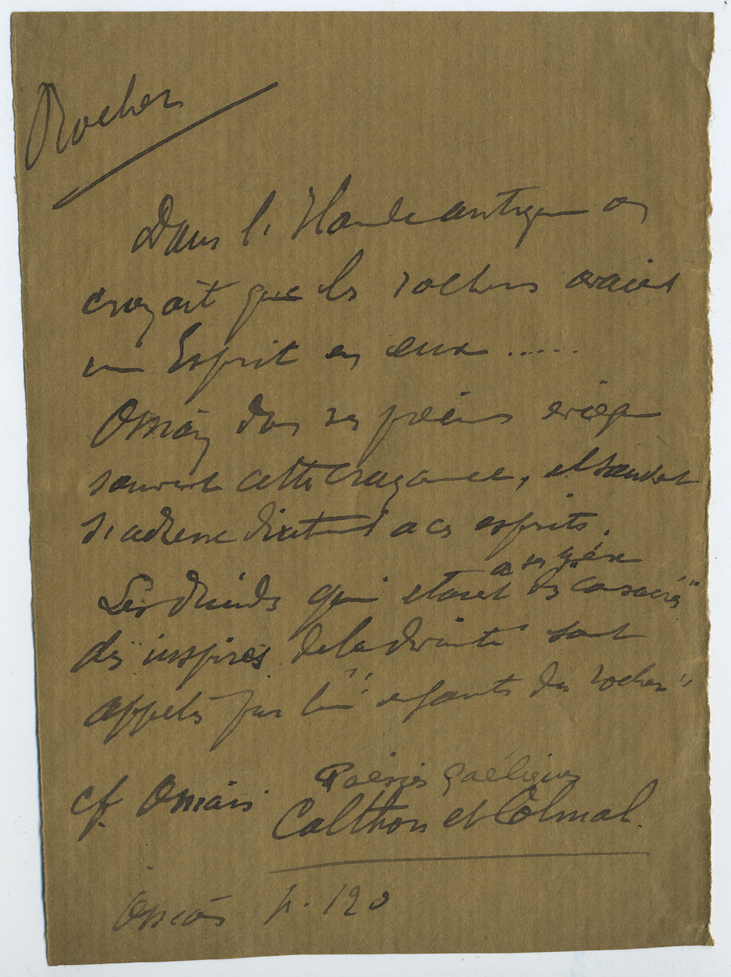 Rochers
Dans l'Irlande antique on
croyait que les rochers avaient
un Esprit en eux .....
Ossian dans ses poèmes évoque
souvent cette croyance, et souvent
s'adresse directement a ces esprits.
a ses yeux
Les druides qui etaient des consacrés
des inspirés de la divinité sont
appelés par lui "enfants des rochers"
cf. Ossian Poésies gaéliques
Calthon et Colmal.
Ossian p. 120